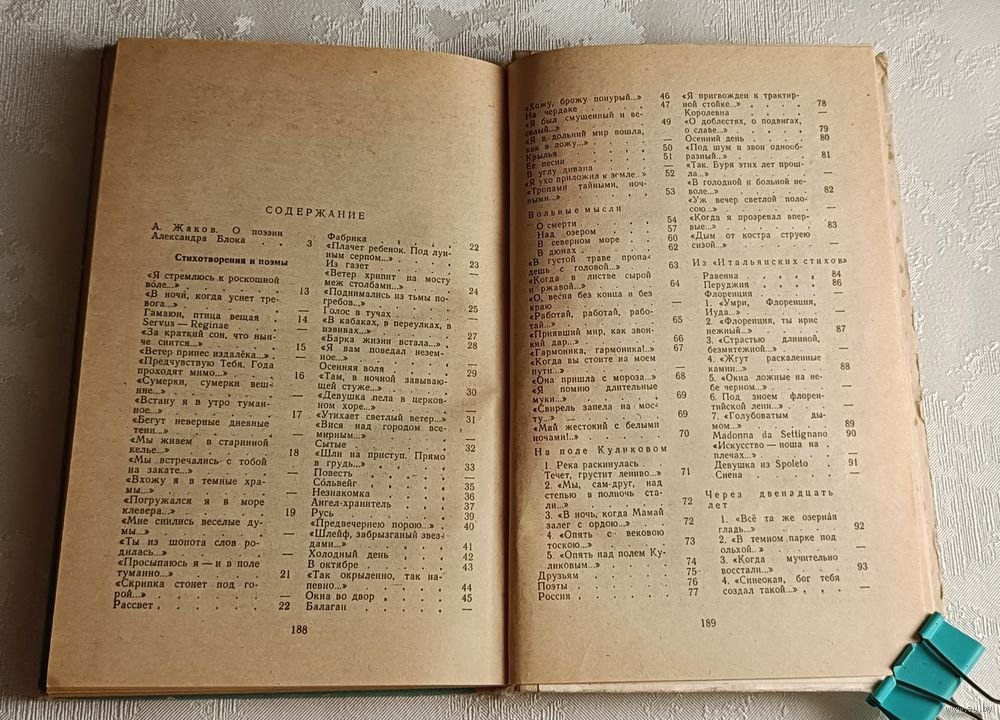 СОДЕРЖАНИЕ
А. Жаков. О поэзии
Александра Блока . . 3
Стихотворения и поэмы
«Я стремлюсь к роскошной
воле...» . . . . . 13
«В ночи, когда уснет тре-
вога...» . . . . . —
Гамаюн, птица вещая . 14
Servus — Reginae . . . —
«За краткий сон, что нын-
че снится...» . . . . 15
«Ветер принес издалёка...» . —
«Предчувствую Тебя. Года
проходят мимо...» . . . 16
«Сумерки, сумерки веш-
ние...» . . . . . —
«Встану я в утро туман-
ное...» . . . . . 17
«Бегут неверные дневные
тени...» . . . . . —
«Мы живем в старинной
келье...» . . . . . 18
«Мы встречались с тобой
на закате...» . . . . —
«Вхожу я в темные хра-
мы...» . . . . . —
«Погружался я в море
клевера...» . . . . 19
«Мне снились веселые ду-
мы...» . . . . . —
«Ты из шопота слов ро-
дилась...» . . . . —
«Просыпаюсь я — и в поле
туманно...» . . . . 21
«Скрипка стонет под го-
рой...» . . . . . —
Рассвет . . . . . 22
Фабрика . . . . 22
«Плачет ребенок. Под лун-
ным серпом...» . . . 23
Из газет . . . . —
«Ветер хрипит на мосту
меж столбами...» . . . 24
«Поднимались из тьмы по-
гребов...» . . . . 25
Голос в тучах . . . . —
«В кабаках, в переулках, в
извивах...» . . . . 27
«Барка жизни встала...» . 28
«Я вам поведал незем-
ное...» . . . . . —
Осенняя воля . . . . 29
«Там, в ночной завываю-
щей стуже...» . . . . 30
«Девушка пела в церков-
ном хоре...» . . . . —
«Утихает светлый ветер...» 31
«Вися над городом все-
мирным...» . . . . —
Сытые . . . . . 32
«Шли на приступ. Прямо
в грудь...» . . . . 33
Повесть . . . . . —
Сольвейг . . . . 35
Незнакомка . . . . 36
Ангел-хранитель . . . 37
Русь . . . . . 39
«Предвечернею порою...» . 40
«Шлейф, забрызганный звез-
дами...» . . . . . 41
Холодный день . . . 42
В октябре . . . . 43
«Так окрыленно, так на-
певно...» . . . . 44
Окна во двор . . . . 45
Балаган . . . . . —
188
«Хожу, брожу понурый...» 46
На чердаке . . . . 47
«Я был смущенный и ве-
селый...» . . . . 49
«Я в дольний мир вошла,
как в ложу...» . . . —
Крылья . . . . . 50
Ее песни . . . . 51
В углу дивана . . . —
«Я ухо приложил к земле..» 52
«Тропами тайными, ноч-
ными...» . . . . . 53
Вольные мысли
О смерти . . . . 54
Над озером . . . . 57
В северном море . . . 60
В дюнах . . . . 62
«В густой траве пропа-
дешь с головой...» . . 63
«Когда в листве сырой
и ржавой...» . . . . 64
«О, весна без конца и без
краю . . . . . —
«Работай, работай, рабо-
тай...» . . . . . 65
«Приявший мир, как звон-
кий дар...» . . . . 66
«Гармоника, гармоника!..» 67
«Когда вы стоите на моем
пути...» . . . . . —
«Она пришла с мороза...» 68
«Я помню длительные
муки...» . . . . . 69
«Свирель запела на мос-
ту...» . . . . . 69
«Май жестокий с белыми
ночами!..» . . . . 70
На поле Куликовом
1. Река раскинулась .
Течет, грустит лениво...» 71
2. «Мы, сам-друг, над
степью в полночь ста-
ли...» . . . . . 72
3. «В ночь, когда Мамай
залег с ордою...» . . 72
4. «Опять с вековою
тоскою...» . . . . 73
5. «Опять над полем Ку-
ликовым...» . . . . 74
Друзьям . . . . . 75
Поэты . . . . . 76
Россия . . . . . 77
«Я пригвожден к трактир-
ной стойке...» . . . 78
Королевна . . . . —
«О доблестях, о подвигах,
о славе...» . . . . 79
Осенний день . . . . 80
«Под шум и звон однооб-
разный...» . . . . 81
«Так. Буря этих лет прош-
ла...» . . . . . —
«В голодной и больной не-
воле...» . . . . . 82
«Уж вечер светлой поло-
сою...» . . . . . —
«Когда я прозревал впер-
вые...» . . . . . 83
«Дым от костра струею
сизой...» . . . . —
Из «Итальянских стихов»
Равенна . . . . 84
Перуджия . . . . 86
Флоренция . . . . —
1. «Умри, Флоренция,
Иуда...» . . . . —
2. «Флоренция, ты ирис
нежный...» . . . . 87
3. «Страстью длинной,
безмятежной...» . . . —
4. «Жгут раскаленные
камни...» . . . . 88
5. «Окна ложные на не-
бе черном...» . . . —
6. Под зноем флорен-
тийской лени...» . . —
7. «Голубоватым ды-
мом...» . . . . . 89
Madonna da Settignano 90
«Искусство — ноша на
плечах...» . . . . —
Девушка из Spoleto . 91
Сиена . . . . . —
Через двенадцать
лет
1. «Всё та же озерная
гладь...» . . . . 92
2. «В темном парке под
ольхой..» . . . . —
3. «Когда мучительно
восстали...» . . . . 93
4. «Синеокая, бог тебя
создал такой...» . . . —
189